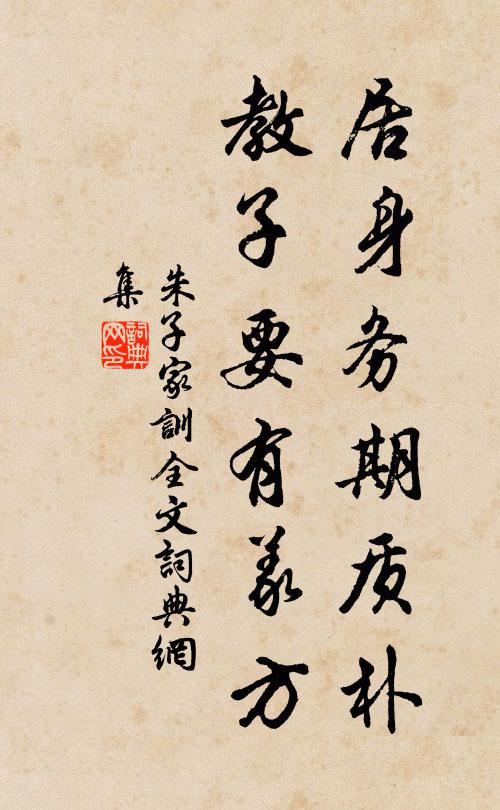 居身务期质朴
教子要有义方
朱子家訓全文詞典網
集
詞典网印